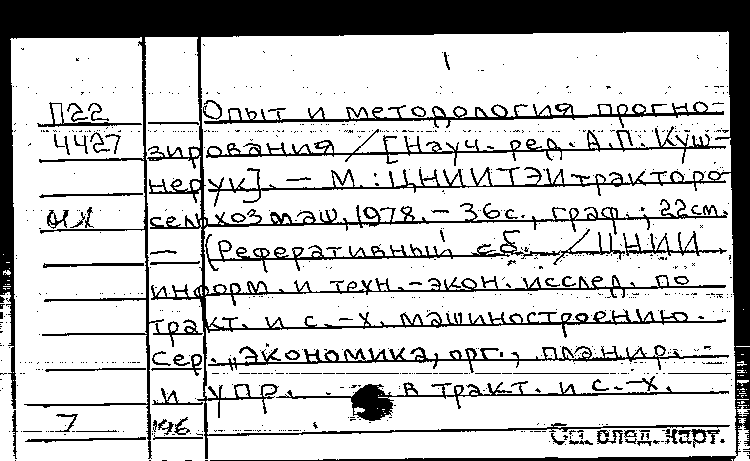 П22 Опыт и методология прогно-
4427 зирования / [Науч. ред. А.П. Куш-
нерук]. — М.: ЦНИИТЭИтракторо-
сельхозмаш, 1978. — 36с., граф.; 22см.
— (Реферативный сб. / ЦНИИ
информ. и техн.-экон. исслед. по
тракт. и с.-х. машиностроению.
Сер. „Экономика, орг., планир.
и упр. в тракт. и с.-х.
7 196
См. след. карт.